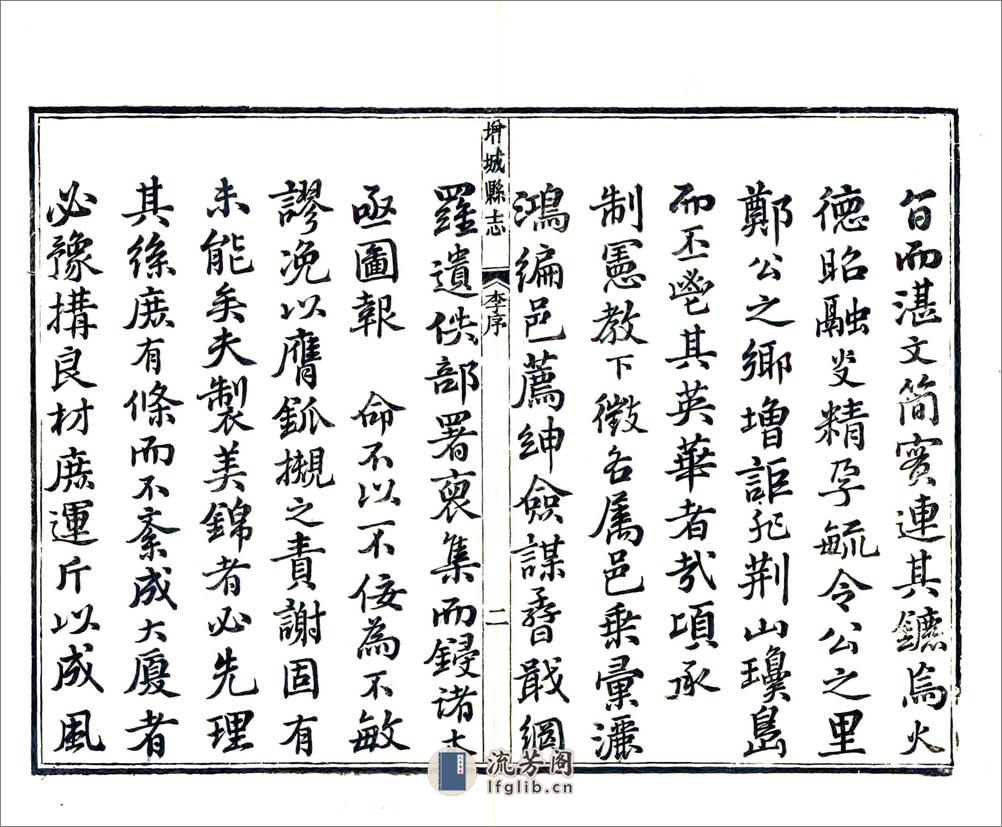 旨而湛文简賓連其鑣烏火
德昭融爰精孕毓令公之里
鄭公之鄉增詎非荆山瓊島
而丕鬯其英華者哉項承
制憲教下徵各属邑乗彙灑
鴻編邑薦紳僉謀孴戢網
增城縣志
李序
二
羅遺佚部署裒集而鋟諸木
亟圖報 命不以不佞為不敏
謬浼以膺觚槻之責謝固有
未能矣夫製美錦者必先理
其絲庶有條而不紊成大廈者
必豫搆良材庶運斤以成風
流芳阁
lfglib.cn